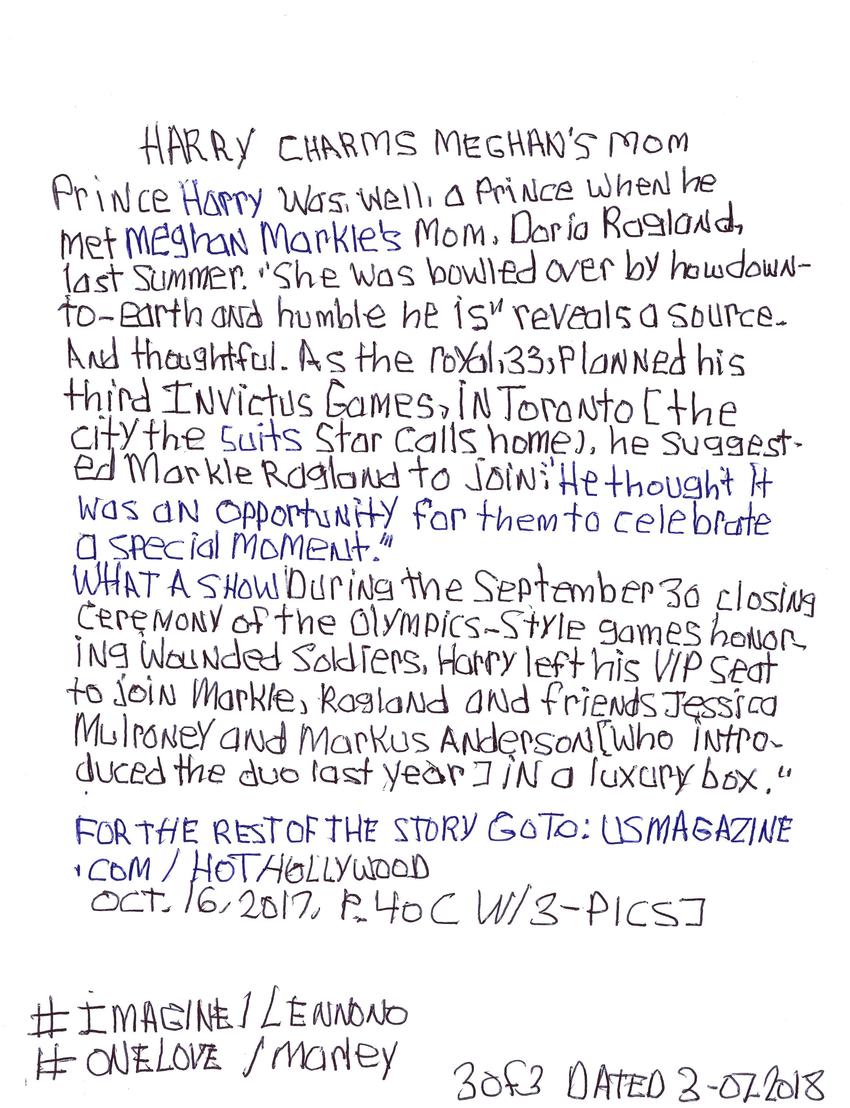 HARRY CHARMS MEGHAN'S MOM
Prince Harry was, well, a Prince when he
met Meghan Markle's Mom, Doria Ragland,
last summer. "She was bowlled over by howdown-
to-earth and humble he is" reveals a source.
And thoughtful. As the royal, 33, planned his
third Invictus Games, in Toronto [the
city the Suits Star calls home], he suggest-
ed Markle Ragland to join: "He thought it
was an opportunity for them to celebrate
a special moment."
WHAT A SHOW During the September 30 closing
ceremony of the Olympics-Style games honor-
ing Wounded Soldiers, Harry left his VIP seat
to join Markle, Ragland and friends Jessica
Mulroney and Markus Anderson [who intro-
duced the duo last year] in a luxury box."
FOR THE REST OF THE STORY GO TO: USMAGAZINE
.COM/HOTHOLLYWOOD
OCT. 16, 2017, P. 40 [W/3-PICS]
#IMAGINE/LENNONO
#ONELOVE/Marley
3of3 DATED 3-07-2018